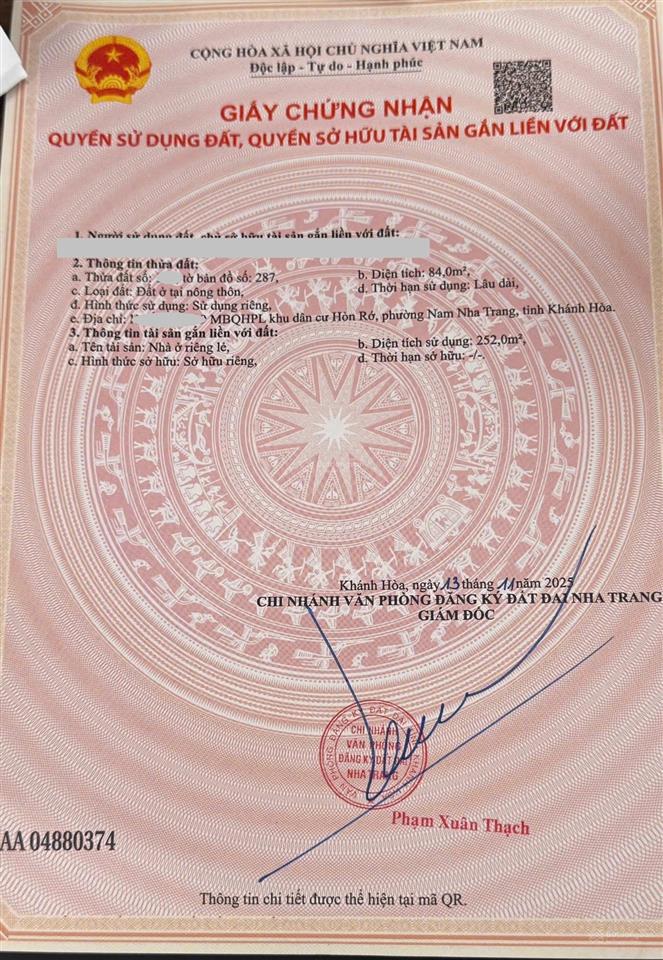 CỘNG HÒA XÃ HỘI CHỦ NGHĨA VIỆT NAM
Độc lập - Tự do - Hạnh phúc
GIẤY CHỨNG NHẬN
QUYỀN SỬ DỤNG ĐẤT, QUYỀN SỞ HỮU TÀI SẢN GẮN LIỀN VỚI ĐẤT
1. Người sử dụng đất, chủ sở hữu tài sản gắn liền với đất:
2. Thông tin thửa đất:
a. Thửa đất số: tờ bản đồ số: 287, b. Diện tích: 84,0m²,
c. Loại đất: Đất ở tại nông thôn, d. Thời hạn sử dụng: Lâu dài,
đ. Hình thức sử dụng: Sử dụng riêng,
e. Địa chỉ: MBQHPL khu dân cư Hòn Rớ, phường Nam Nha Trang, tỉnh Khánh Hòa.
3. Thông tin tài sản gắn liền với đất:
a. Tên tài sản: Nhà ở riêng lẻ, b. Diện tích sử dụng: 252,0m²,
c. Hình thức sở hữu: Sở hữu riêng, d. Thời hạn sở hữu: -/-.
Khánh Hòa, ngày 13 tháng 11 năm 2025
CHI NHÁNH VĂN PHÒNG ĐĂNG KÝ ĐẤT ĐAI NHA TRANG
GIÁM ĐỐC
CHI NHÁNH
VĂN PHÒNG
ĐĂNG KÝ ĐẤT
NHA TRANG
Phạm Xuân Thạch
AA 04880374
Thông tin chi tiết được thể hiện tại mã QR.